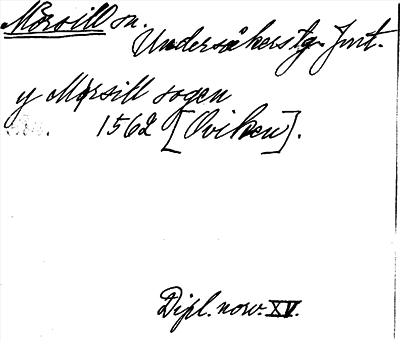 Mörsill sn.
Undersåkers tg. Jmt.
y Mörsill sogen
1562 [Oviken].
Dipl. norv. XV.